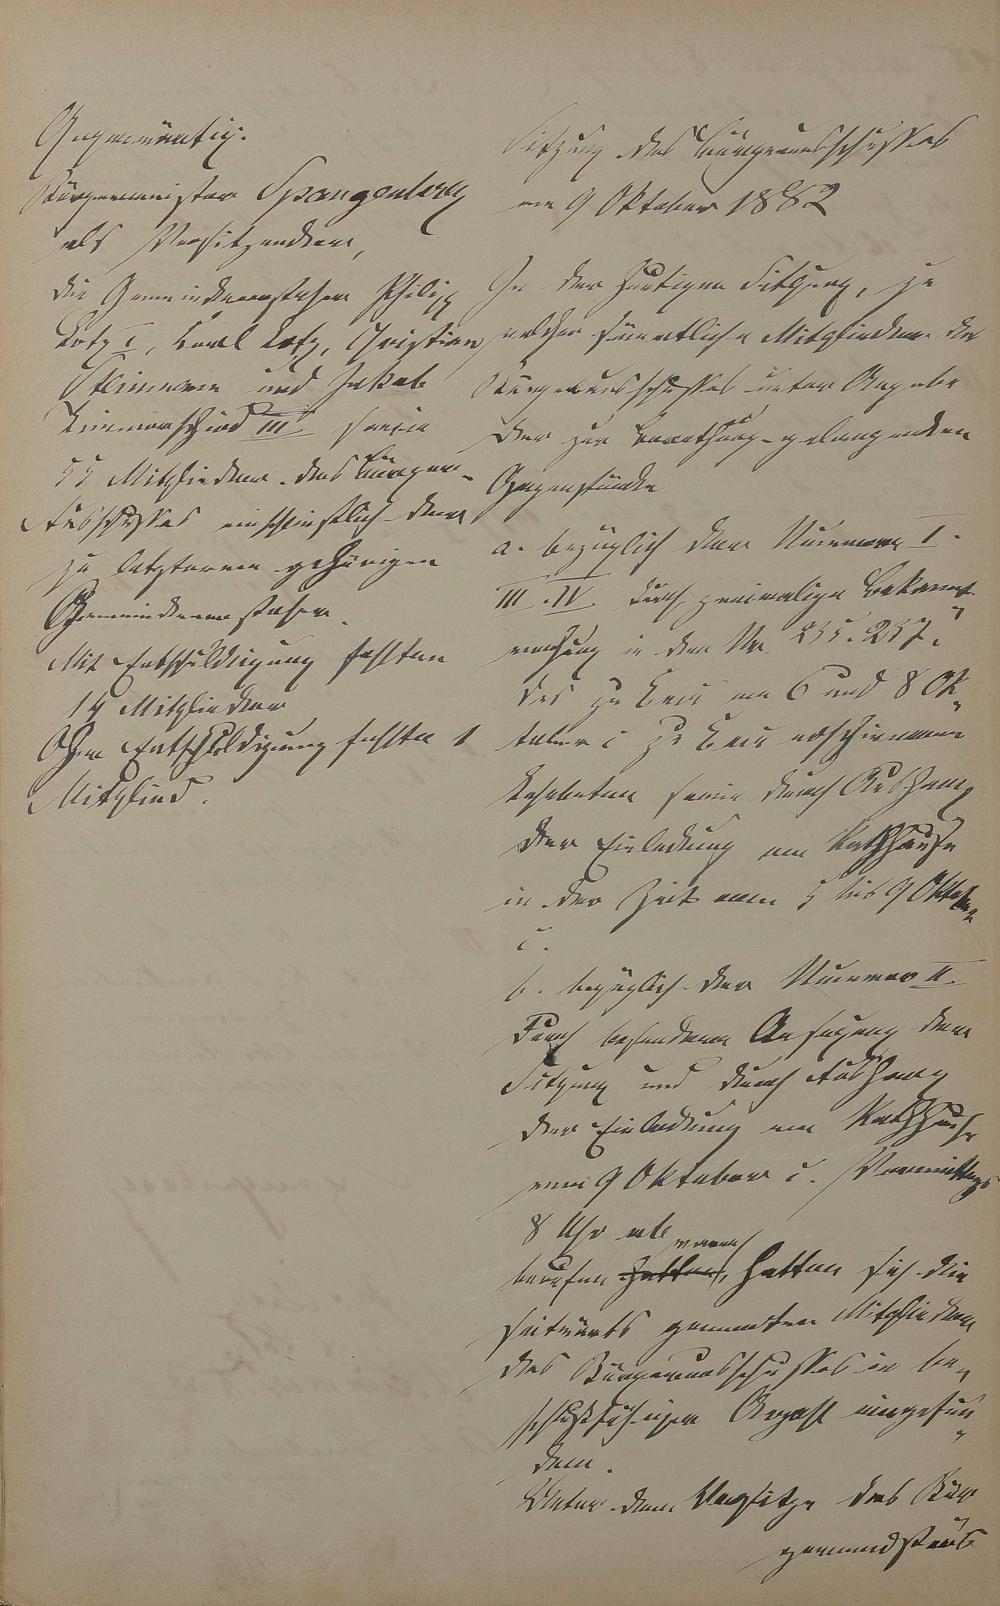 Gegenwärtig.
Bürgermeister Spangenberg
als Vorsitzender,
die Gemeindevorsteher Philipp
Lotz I, Karl Lotz, Christian
und Jakob
III sowie
55 Mitglieder des Bürger-
Ausschusses einschließlich der
zu letzterem gehörigen
Gemeindevorsteher.
Mit Entschuldigung fehlten
14 Mitglieder
Ohne Entschuldigung fehlte 1
Mitglied.
Sitzung des Bürgerausschusses
am 9 Oktober 1882
In der heutigen Sitzung, zu
welcher sämmtliche Mitglieder des
Bürgerausschusses unter Angabe
der zur Berathung gelangenden
Gegenstände
a. bezüglich der Nummern I.
III. IV. durch zweimalige Bekannt-
machung in den Nr. 235. 237.
des zu am 6 und 8 Ok-
tober c zu erschienenen
sowie durch Aushang
der Einladung am Rathhause
in der Zeit vom 5 bis 9 Oktober
c.
b. bezüglich der Nummer II.
durch besondere Ansagung der
Sitzung und durch Aushang
der Einladung am Rathhause
vom 9 Oktober c. Vormittags
8 Uhr ab
berufen hatten, waren hatten sich die
seitwärts genannten Mitglieder
des Bürgerausschusses in be-
schlußfähiger Anzahl eingefun-
den.
Unter dem Vorsitze des Bür